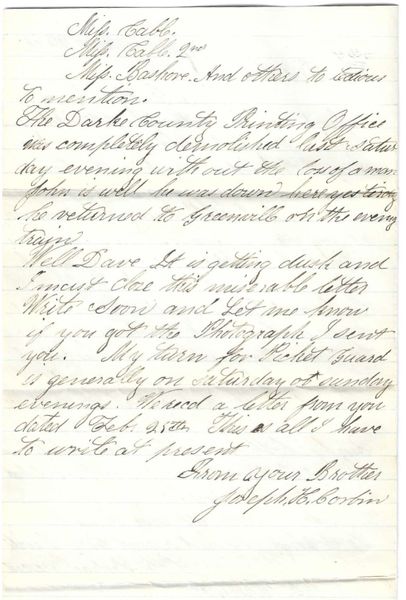 Miss. Cabb.
Miss. Cabb. 2nd
Miss. Cashore. And others to tedious
to mention.
The Darke County Printing Office
was completely demolished last Satur
day evening without the loss of a man
John is well he was down here yesterday
he returned to Greenvill on the evening
train
Well Dave It is getting dusk and
I must close this miserable letter
Write Soon and Let me know
if you got the Photograph I sent
you. My turn for Picket Guard
is generally on Saturday or sunday
evenings. We recd a letter from you
dated Feb. 25th This is all I have
to write at present
From Your Brother
Joseph. H. Corbin